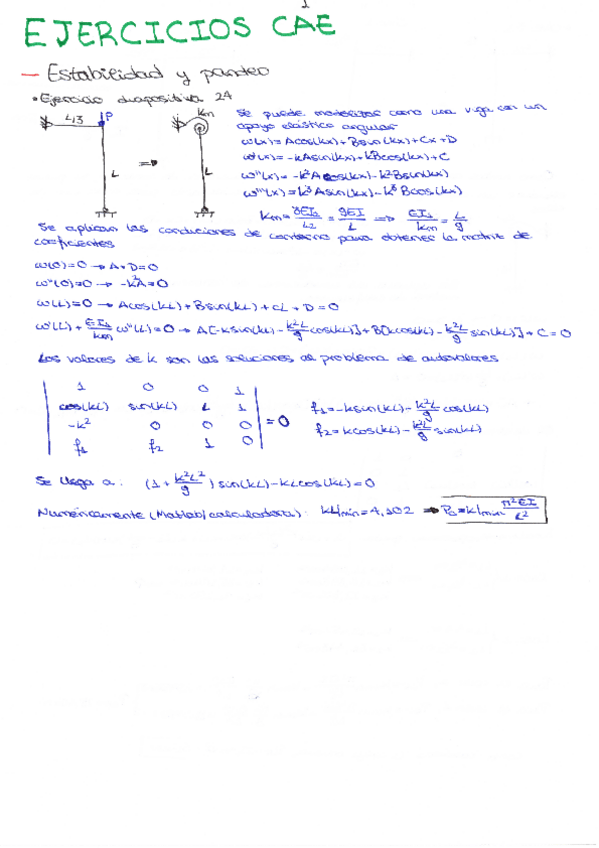 1
EJERCICIOS CAE
– Estabilidad y pandeo
• Ejercicio diapositiva 24
L/3 P Km
L ⇒ L
Se puede modelizar como una viga con un
apoyo elástico angular
ω(x)=Acos(kx)+Bsin(kx)+Cx+D
ω'(x)=-kAsin(kx)+kBcos(kx)+C
ω''(x)=-k²Acos(kx)-k²Bsin(kx)
ω'''(x)=k³Asin(kx)-k³Bcos(kx)
Km = 3EI₂/L₂ = 9EI/L ⇒ EI₁/Km = L/9
Se aplican las condiciones de contorno para obtener la matriz de
coeficientes
ω(0)=0 → A+D=0
ω''(0)=0 → -k²A=0
ω(L)=0 → Acos(kL)+Bsin(kL)+CL+D=0
ω'(L)+EI₁/Km ω''(L)=0 → A[-ksin(kL)-k²L/9 cos(kL)]+B[kcos(kL)-k²L/9 sin(kL)]+C=0
Los valores de k son las soluciones al problema de autovalores
1 0 0 1
cos(kL) sin(kL) L 1
-k² 0 0 0
f₁ f₂ 1 0
=0
f₁=-ksin(kL)-k²L/9 cos(kL)
f₂=kcos(kL)-k²L/9 sin(kL)
Se llega a: (1+k²L²/9)sin(kL)-kLcos(kL)=0
Numéricamente (Matlab/calculadora): kLmin=4,202 ⇒ Pc=k/min π²EI/L²